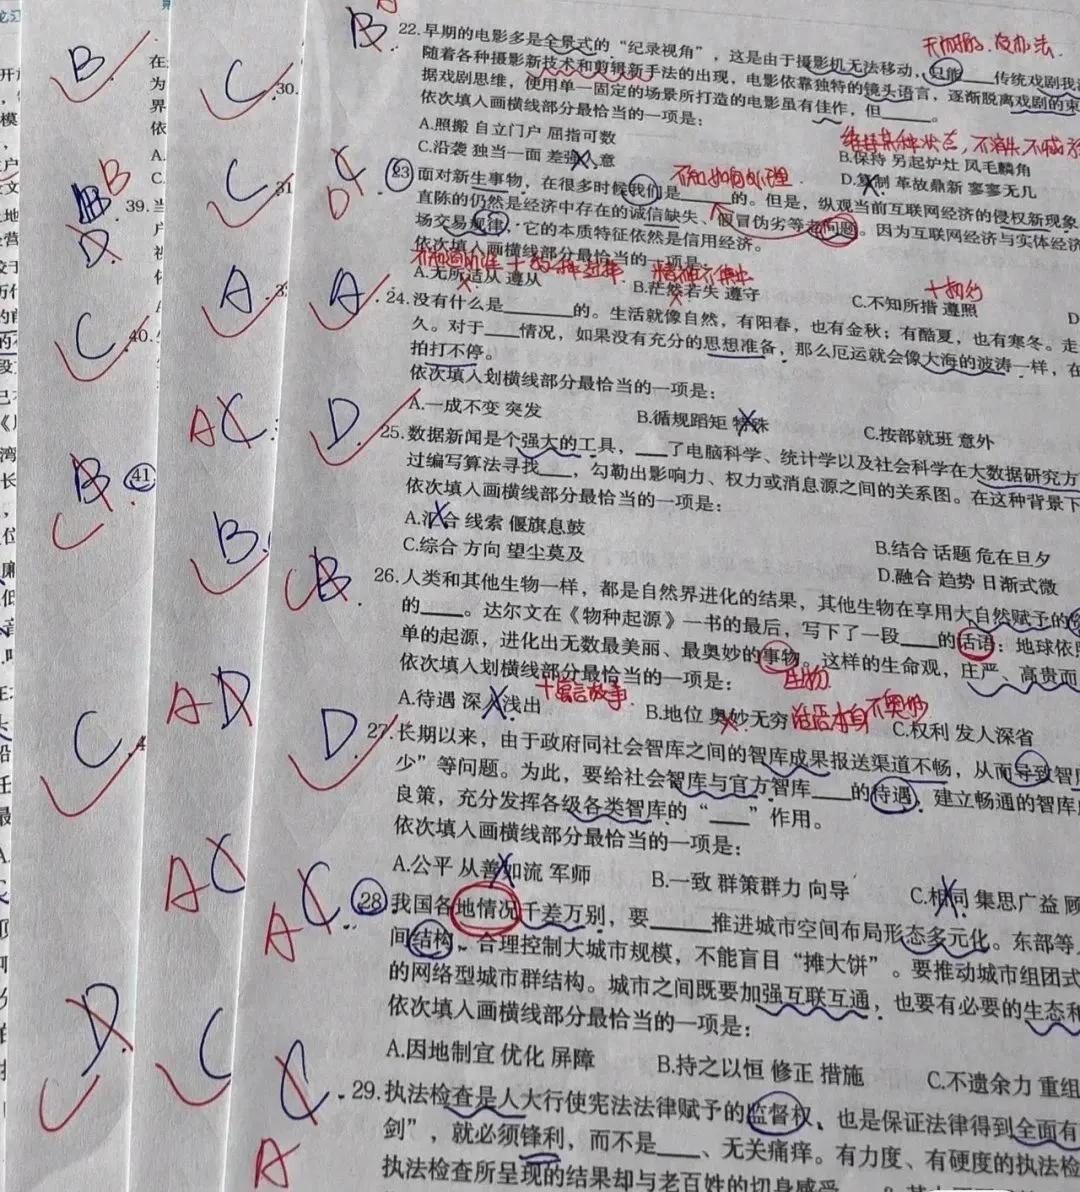 B
C
B
C
39.
D
A
A
C
40.
A
C
D
B
41
B
B
C
A
D
D
A
C
A
C
D
C
C
A
22.早期的电影多是全景式的“纪录视角”,这是由于摄影机无法移动,只能____传统戏剧我
随着各种摄影新技术和剪辑新手法的出现,电影依靠独特的镜头语言,逐渐脱离戏剧的束
据戏剧思维,使用单一固定的场景所打造的电影虽有佳作,但____。
依次填入画横线部分最恰当的一项是:
A.照搬 自立门户 屈指可数
B.保持 另起炉灶 凤毛麟角
C.沿袭 独当一面 差强人意
D.复制 革故鼎新 寥寥无几
不知如何处理
23 面对新生事物,在很多时候我们是____的。但是,纵观当前互联网经济的侵权新现象
直陈的仍然是经济中存在的诚信缺失、假冒伪劣等老问题。因为互联网经济与实体经济
场交易规律,它的本质特征依然是信用经济。
依次填入画横线部分最恰当的一项是:
A.无所适从 遵从
B.茫然若失 遵守
C.不知所措 遵照
D
24.没有什么是____的。生活就像自然,有阳春,也有金秋;有酷夏,也有寒冬。走
久。对于____情况,如果没有充分的思想准备,那么厄运就会像大海的波涛一样,在
拍打不停。
依次填入划横线部分最恰当的一项是:
A.一成不变 突发
B.循规蹈矩 特殊
C.按部就班 意外
25.数据新闻是个强大的工具,____了电脑科学、统计学以及社会科学在大数据研究方
过编写算法寻找____,勾勒出影响力、权力或消息源之间的关系图。在这种背景下
依次填入画横线部分最恰当的一项是:
A.汇合 线索 偃旗息鼓
B.结合 话题 危在旦夕
C.综合 方向 望尘莫及
D.融合 趋势 日渐式微
26.人类和其他生物一样,都是自然界进化的结果,其他生物在享用大自然赋予的
的____。达尔文在《物种起源》一书的最后,写下了一段____的话语:地球依
单的起源,进化出无数最美丽、最奥妙的事物。这样的生命观,庄严、高贵而
依次填入划横线部分最恰当的一项是:
生物
A.待遇 深入浅出
十寓言故事
B.地位 奥妙无穷
话语本身不奥妙
C.权利 发人深省
27.长期以来,由于政府同社会智库之间的智库成果报送渠道不畅,从而导致智
少”等问题。为此,要给社会智库与官方智库____的待遇,建立畅通的智库
良策,充分发挥各级各类智库的“____”作用。
依次填入画横线部分最恰当的一项是:
A.公平 从善如流 军师
B.一致 群策群力 向导
C.相同 集思广益 顾
28 我国各地情况千差万别,要____推进城市空间布局形态多元化。东部等
间结构,合理控制大城市规模,不能盲目“摊大饼”。要推动城市组团式
的网络型城市群结构。城市之间既要加强互联互通,也要有必要的生态和
依次填入画横线部分最恰当的一项是:
A.因地制宜 优化 屏障
B.持之以恒 修正 措施
C.不遗余力 重组
29.执法检查是人大行使宪法法律赋予的监督权、也是保证法律得到全面有
剑”,就必须锋利,而不是____、无关痛痒。有力度、有硬度的执法检
执法检查所呈现的结果却与老百姓的切身感受